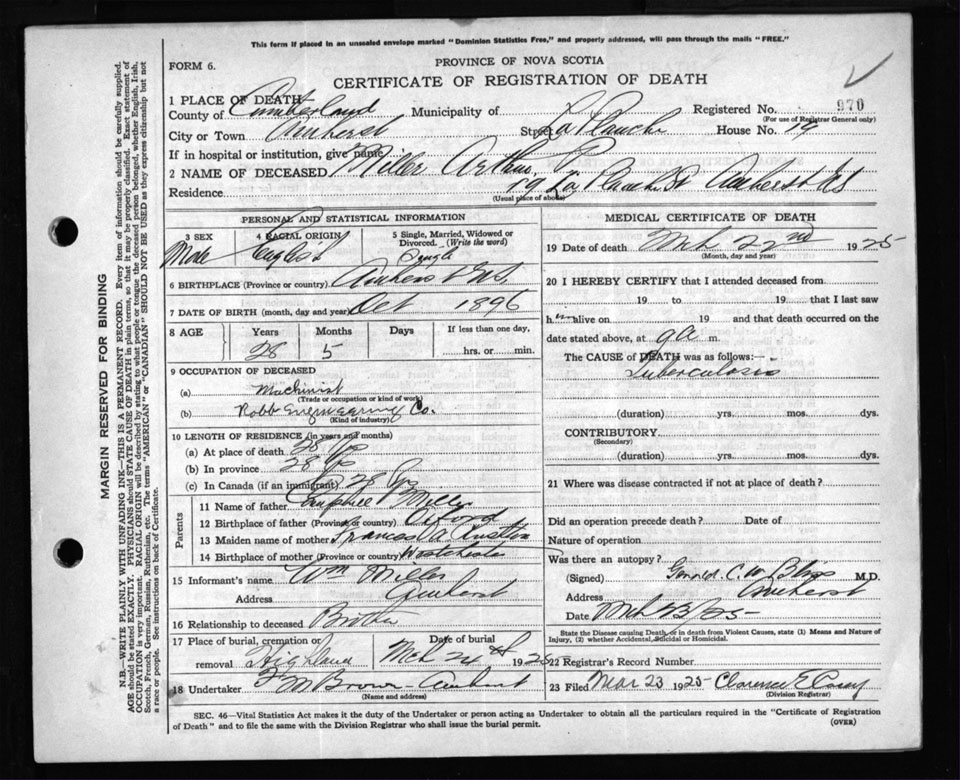 This form if placed in an unsealed envelope marked "Dominion Statistics Free," and properly addressed, will pass through the mails "FREE."
FORM 6.
PROVINCE OF NOVA SCOTIA
CERTIFICATE OF REGISTRATION OF DEATH
MARGIN RESERVED FOR BINDING
N.B.—WRITE PLAINLY WITH UNFADING INK—THIS IS A PERMANENT RECORD. Every item of information should be carefully supplied.
AGE should be stated EXACTLY. PHYSICIANS should STATE CAUSE OF DEATH in plain terms, so that it may be properly classified. Exact statement of
OCCUPATION is very important. RACIAL ORIGIN will be described by stating to what people or tongue the deceased person belonged, whether English, Irish,
Scotch, French, German, Russian, Ruthenian, etc. The terms "AMERICAN" or "CANADIAN" SHOULD NOT BE USED as they express citizenship but not
a race or people. See instructions on back of Certificate.
1 PLACE OF DEATH
County of Cumberland Municipality of Registered No. 970
(For use of Registrar General only)
City or Town Amherst Street La Planche House No. 19
If in hospital or institution, give name
2 NAME OF DECEASED Miller Arthur P
Residence 19 La Planche St Amherst NS
(Usual place of abode)
PERSONAL AND STATISTICAL INFORMATION
3 SEX
Male
4 RACIAL ORIGIN
English
5 Single, Married, Widowed or Divorced. (Write the word)
Single
6 BIRTHPLACE (Province or country) Amherst N.S.
7 DATE OF BIRTH (month, day and year) Oct 1896
8 AGE Years Months Days If less than one day,
28 5 hrs. or min.
9 OCCUPATION OF DECEASED
(a) Machinist
(Trade or occupation or kind of work)
(b) Robb Engineering Co.
(Kind of industry)
10 LENGTH OF RESIDENCE (in years and months)
(a) At place of death 28 yrs
(b) In province 28 yrs
(c) In Canada (if an immigrant) 28 yrs
Parents
11 Name of father Campbell Miller
12 Birthplace of father (Province or country)
13 Maiden name of mother Frances A Austin
14 Birthplace of mother (Province or country) Westchester
15 Informant's name Wm Miller
Address Amherst
16 Relationship to deceased Brother
17 Place of burial, cremation or removal Highland
Date of burial Mch 24th 1925
18 Undertaker F M Brown Amherst
(Name and address)
MEDICAL CERTIFICATE OF DEATH
19 Date of death Mch 22nd 1925
(Month, day and year)
20 I HEREBY CERTIFY that I attended deceased from
19 to 19 that I last saw
him alive on 19 and that death occurred on
date stated above, at 9 a m.
The CAUSE OF DEATH was as follows:—
Tuberculosis
(duration) yrs. mos. dys.
CONTRIBUTORY
(Secondary)
(duration) yrs. mos. dys.
21 Where was disease contracted if not at place of death?
Did an operation precede death? Date of
Nature of operation
Was there an autopsy?
(Signed) Gerald C. W. M.D.
Address Amherst
Date Mch 23/25
State the Disease causing Death, or in death from Violent Causes, state (1) Means and Nature of
Injury, (2) whether Accidental, Suicidal or Homicidal.
22 Registrar's Record Number
23 Filed Mar 23 1925 Clarence E Casey
(Division Registrar)
SEC. 46—Vital Statistics Act makes it the duty of the Undertaker or person acting as Undertaker to obtain all the particulars required in the "Certificate of Registration
of Death" and to file the same with the Division Registrar who shall issue the burial permit.
(OVER)